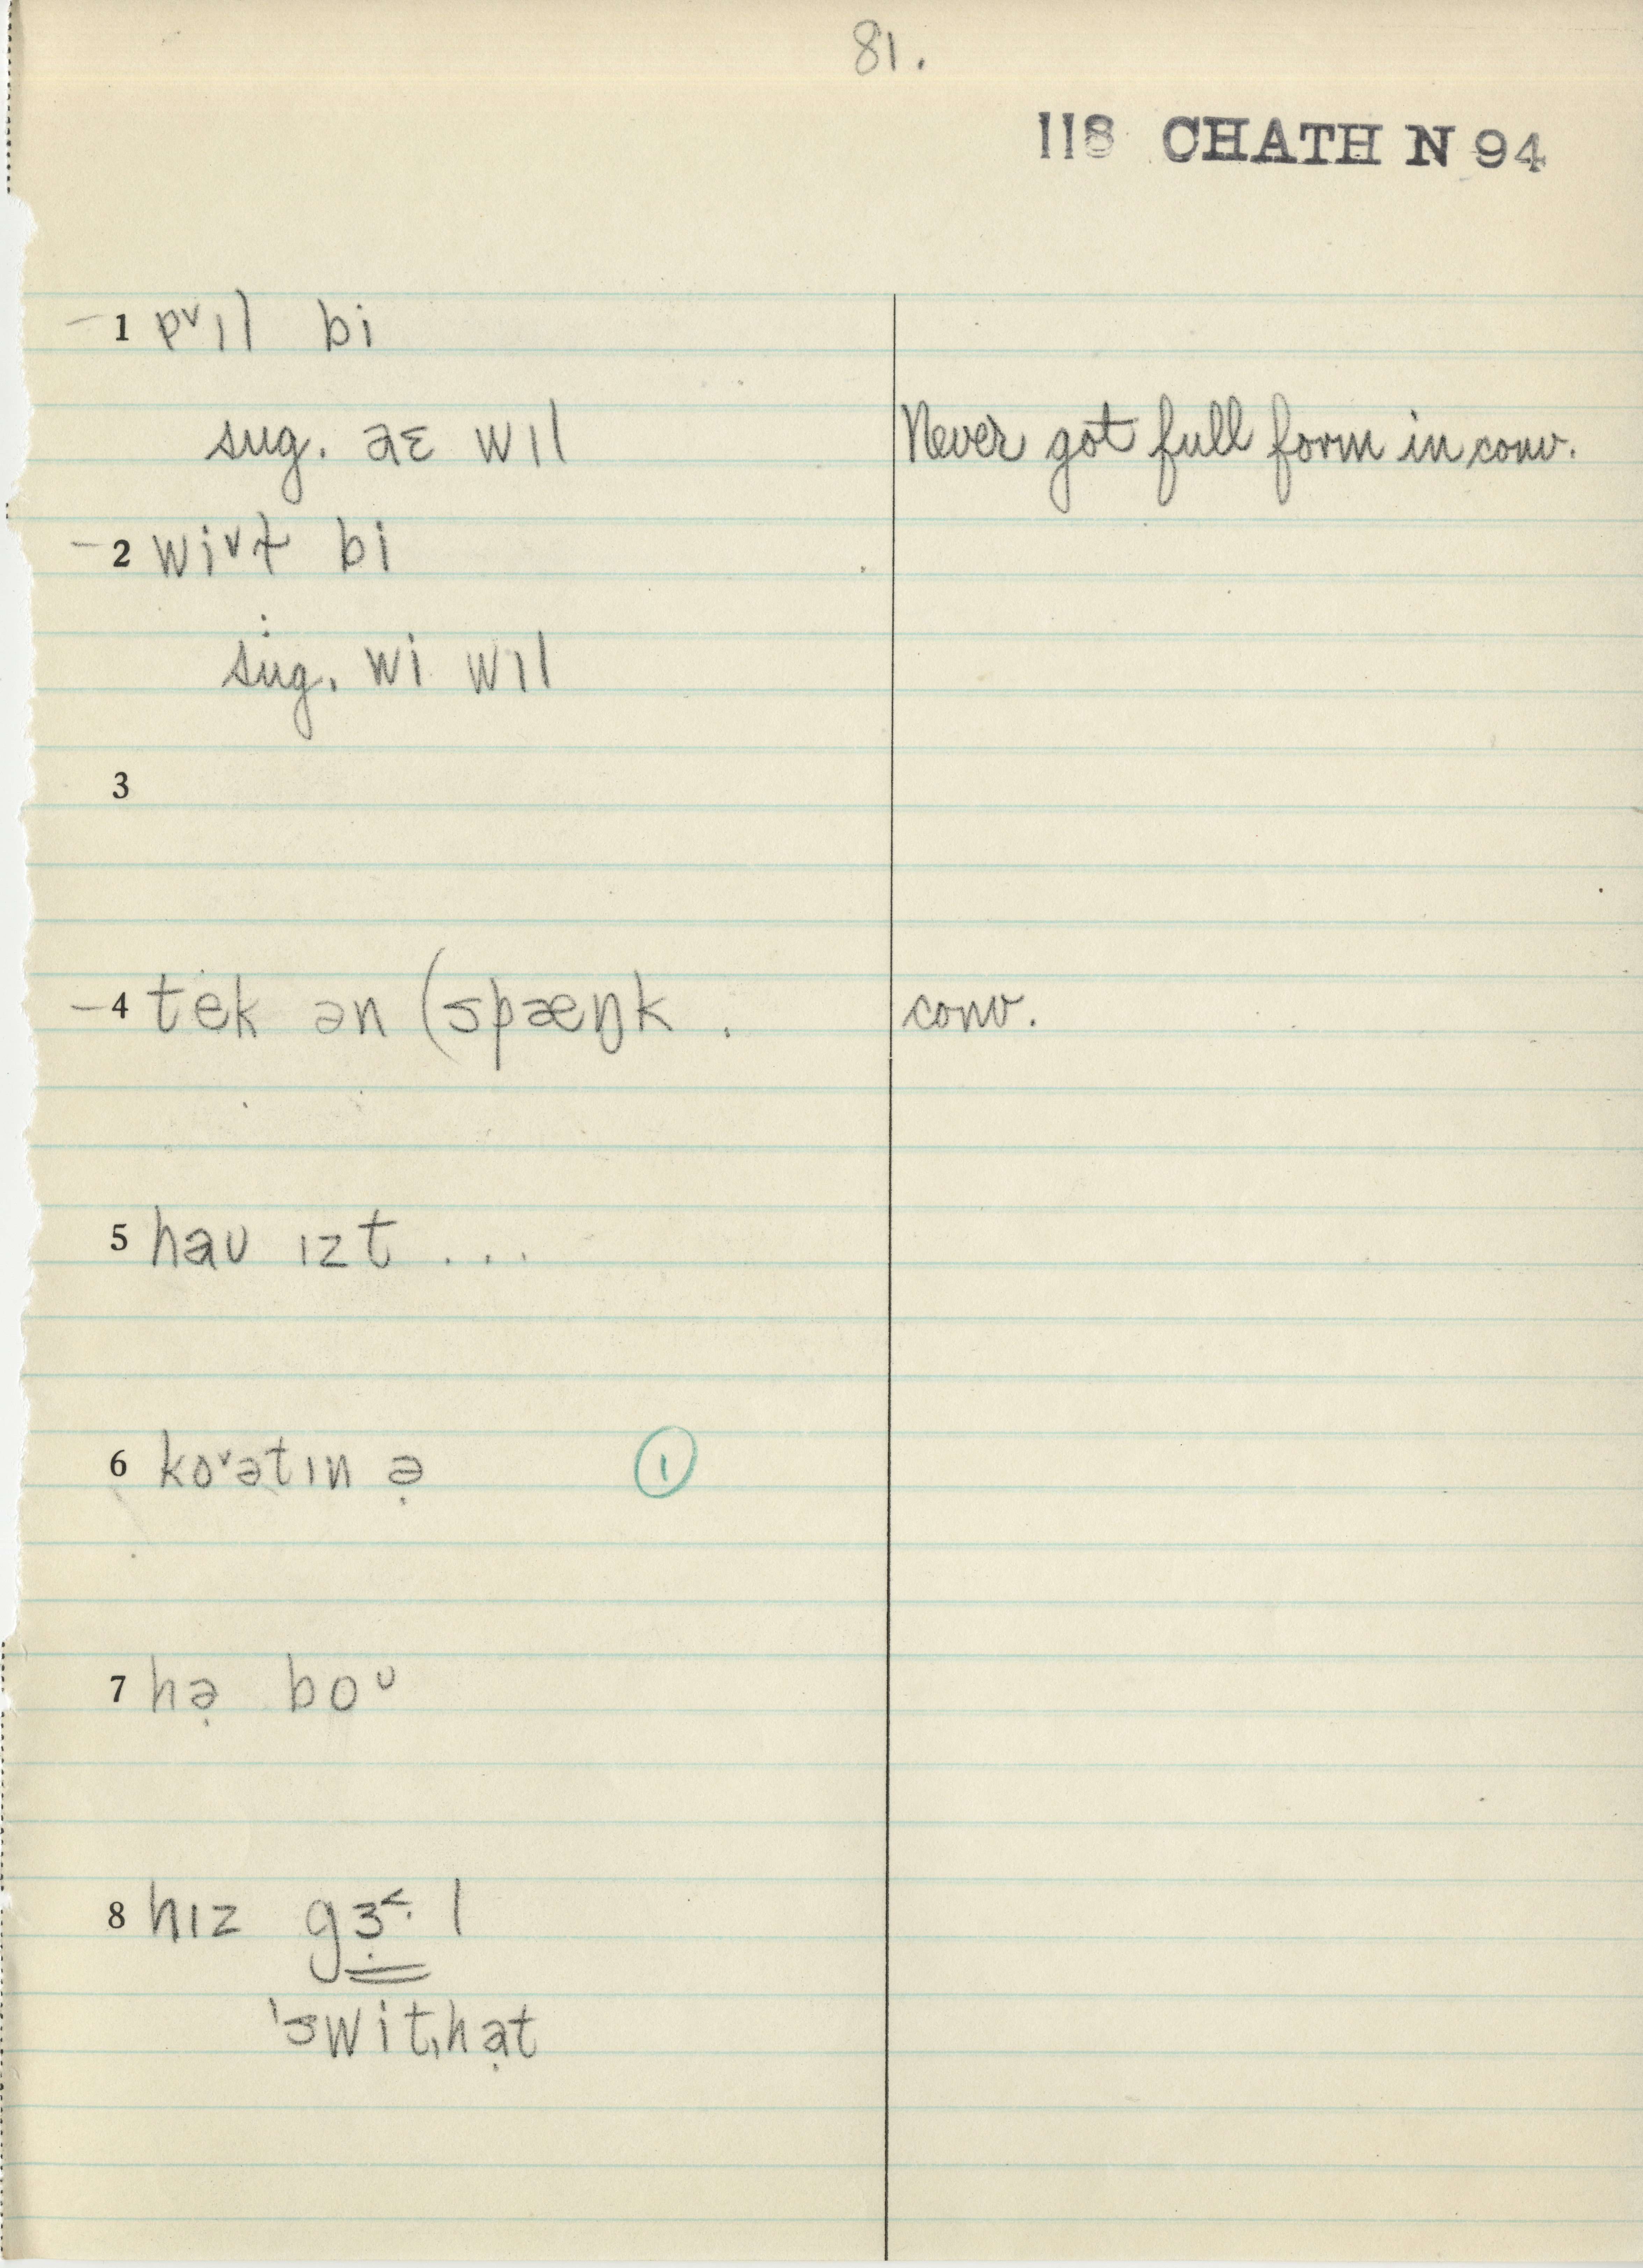 81.
118 CHATH N 94
1 ɐ˅ɪl bi
sug. aɛ wɪl Never got full form in conv.
2 wi˅ɫ bi
sug. wi wɪl
3
4 tek ən (spæŋk . conv.
5 haʊ ɪzt . . .
6 ko˅ətɪn ə̣ ①
7 hə̣ boᶷ
8 hɪz gɜ̣˂· l
ˈswitˌhạt